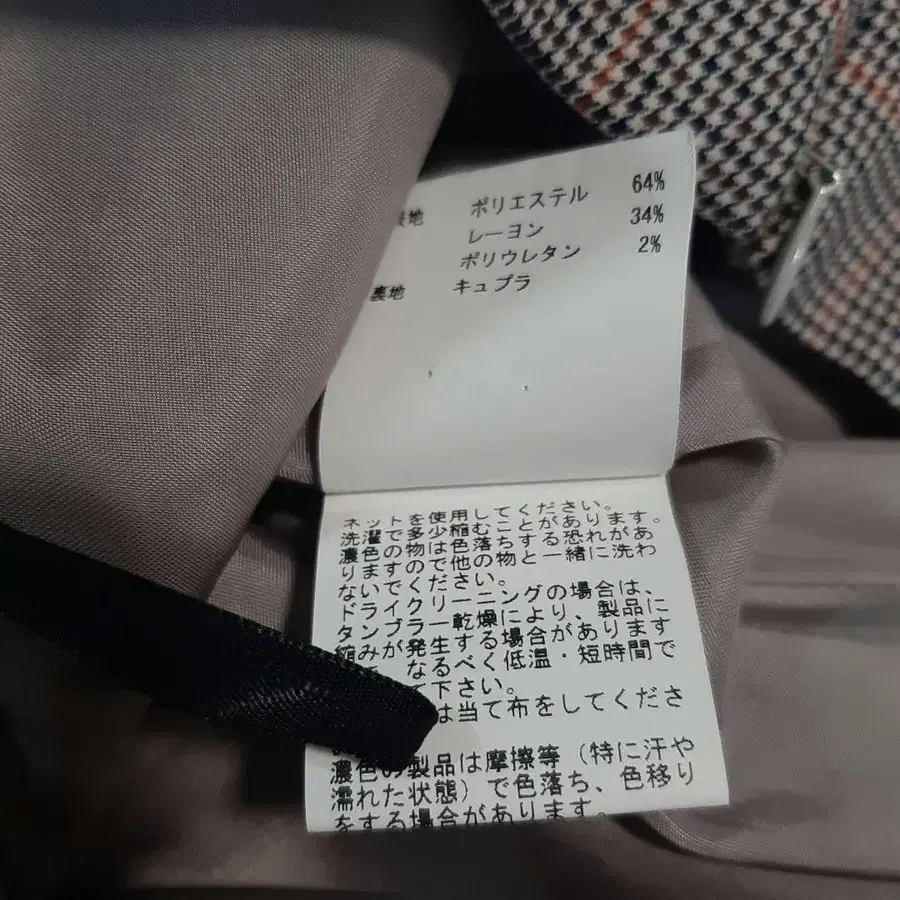 表地 ポリエステル 64%
レーヨン 34%
ポリウレタン 2%
裏地 キュプラ
ネットを使用してください。
洗濯で多少縮むことがあります。
濃色の物は色落ちする恐れがあ
りますので他の物と一緒に洗わ
ないでください。
ドライクリーニングの場合は、
タンブラー乾燥により、製品に
縮みが発生する場合があります
なるべく低温・短時間で
て下さい。
は当て布をしてくださ
濃色の製品は摩擦等（特に汗や
濡れた状態）で色落ち、色移り
をする場合があります。